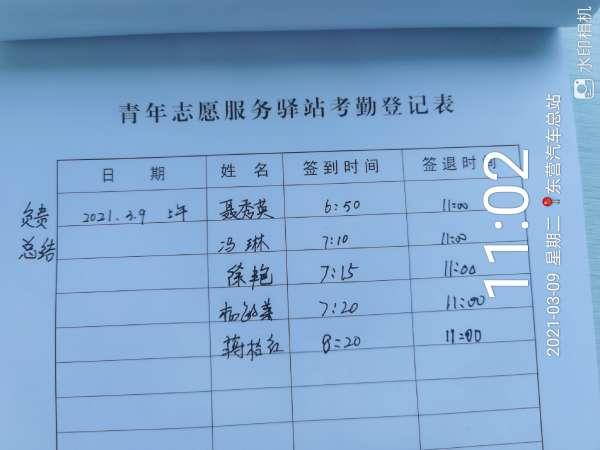 青年志愿服务驿站考勤登记表
日 期 姓 名 签到时间 签退时间
负责 2021.3.9 上午 聂秀英 6:50 11:00
总结 冯琳 7:10 11:00
徐艳 7:15 11:00
7:20 11:00
蒋 红 8:20 11:00
11:02
2021-03-09 星期二 东营汽车总站
水印相机